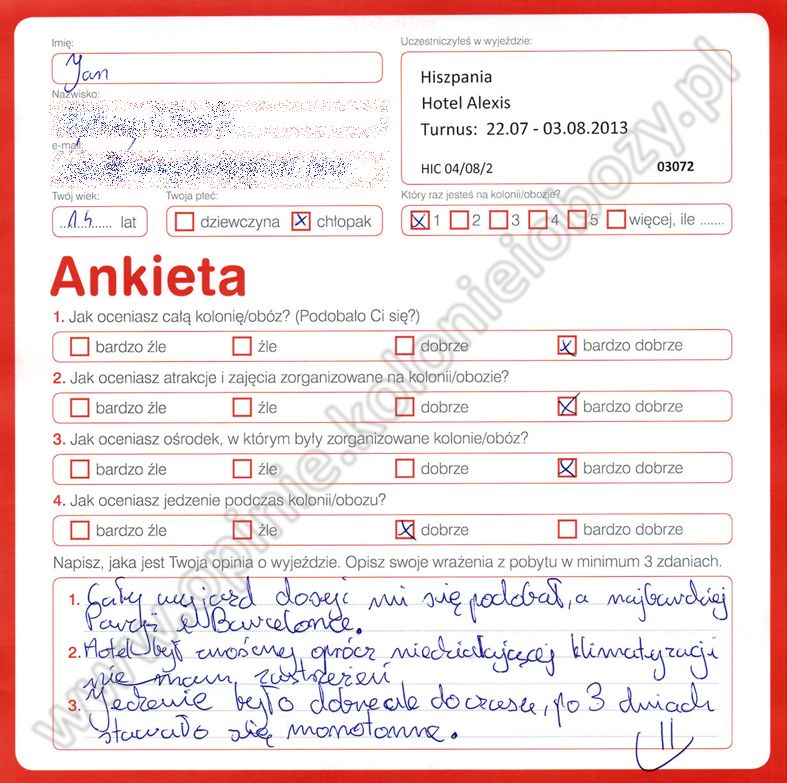 Imię:
Jan
Nazwisko:
e-mail:
Twój wiek:
14 lat
Twoja płeć:
dziewczyna x chłopak
Uczestniczyłeś w wyjeździe:
Hiszpania
Hotel Alexis
Turnus: 22.07 - 03.08.2013
HIC 04/08/2 03072
Który raz jesteś na kolonii/obozie?
x 1 2 3 4 5 więcej, ile .......
Ankieta
1. Jak oceniasz całą kolonię/obóz? (Podobało Ci się?)
bardzo źle źle dobrze x bardzo dobrze
2. Jak oceniasz atrakcje i zajęcia zorganizowane na kolonii/obozie?
bardzo źle źle dobrze x bardzo dobrze
3. Jak oceniasz ośrodek, w którym były zorganizowane kolonie/obóz?
bardzo źle źle dobrze x bardzo dobrze
4. Jak oceniasz jedzenie podczas kolonii/obozu?
bardzo źle źle x dobrze bardzo dobrze
Napisz, jaka jest Twoja opinia o wyjeździe. Opisz swoje wrażenia z pobytu w minimum 3 zdaniach.
1. Cały wyjazd dosyć mi się podobał, a najbardziej
Paryż i Barcelona.
2. Hotel był znośny oprócz niedziałającej klimatyzacji
nie mam zastrzeżeń
3. Jedzenie było dobre ale do czasu, po 3 dniach
stawało się monotonne.
www.opinie.kolonieiobozy.pl